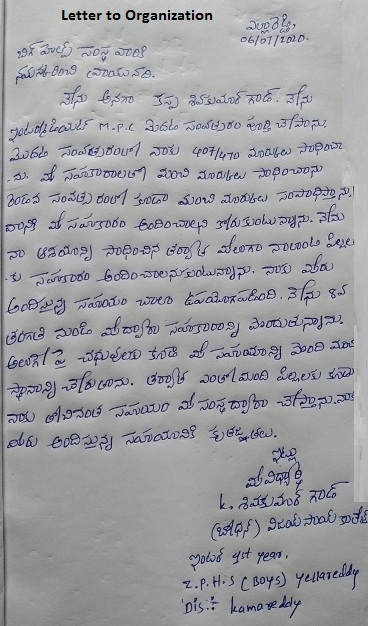 Letter to Organization
ఎల్లారెడ్డి,
06/07/2020.
బిగ్ హెల్ప్ సంస్థ వారికి
నమస్కరించి వ్రాయునది.
నేను అనగా కప్ప శివకుమార్ గౌడ్. నేను
ఇంటర్మీడియెట్ M.P.C మొదటి సంవత్సరం పూర్తి చేసాను.
మొదటి సంవత్సరంలో నాకు 407/470 మార్కులు సాధించా
ను. మీ సహకారాలతో మంచి మార్కులు సాధించాను
రెండవ సంవత్సరంలో కూడా మంచి మార్కులు సంపాదిస్తాను.
దానికి మీ సహకారం అందించాలని కోరుకుంటున్నాను. నేను
నా ఆశయాన్ని సాధించిన తర్వాత మేలుగా నాలాంటి పిల్లల
-కు సహకారం అందించాలనుకుంటున్నాను. నాకు మీరు
అందిస్తున్న సహాయం చాలా ఉపయోగపడింది. నేను 8వ
తరగతి నుండి మీ ద్వారా సహకారాన్ని పొందుతున్నాను.
అలాగే పై చదువులకు కూడా మీ సహాయాన్ని పొంది మంచి
స్థానాన్ని చేరుతాను. తర్వాత ఎంతో మంది పిల్లలకు కూడా
నాకు తోచినంత సహాయం మీ సంస్థ ద్వారా చేస్తాను. నాకు
మీరు అందిస్తున్న సహాయానికి కృతజ్ఞతలు.
ఇట్లు
మీ విద్యార్థి
k. శివకుమార్ గౌడ్
(బోధన్) విజయ సాయి కాలేజ్
ఇంటర్ 1st year.
Z.P.H.S (Boys) Yellareddy
Dis:- kamareddy